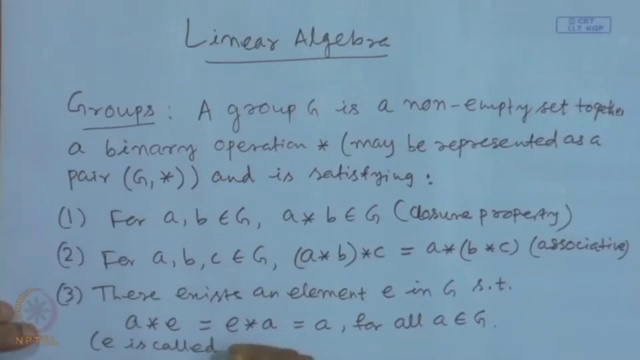 © CET
I.I.T. KGP
Linear Algebra
Groups : A group G is a non-empty set together
a binary operation * (may be represented as a
pair (G, *)) and is satisfying :
(1) For a, b ∈ G, a * b ∈ G (closure property)
(2) For a, b, c ∈ G, (a * b) * c = a * (b * c) (associative)
(3) There exists an element e in G s.t.
a * e = e * a = a, for all a ∈ G.
(e is called
NPTEL